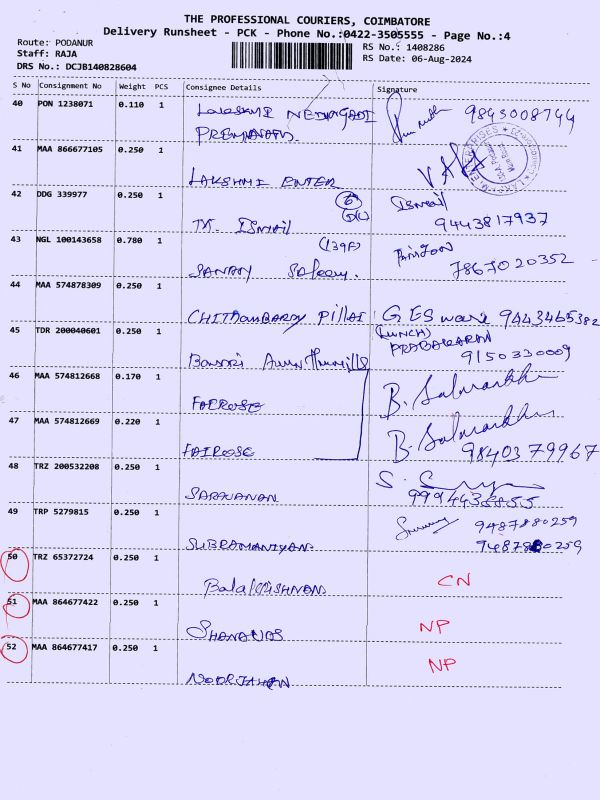 THE PROFESSIONAL COURIERS, COIMBATORE
Delivery Runsheet - PCK - Phone No.:0422-3505555 - Page No.:4
Route: PODANUR
Staff: RAJA
DRS No.: DCJB140828604
RS No.: 1408286
RS Date: 06-Aug-2024
S No Consignment No Weight PCS Consignee Details Signature
40 PON 1238071 0.110 1 9843008744
41 MAA 866677105 0.250 1 LAKSHMI ENTER
42 DDG 339977 0.250 1 M. Ismail Ismail 9443817937
43 NGL 100143658 0.780 1 (139A) 7867020352
44 MAA 574878309 0.250 1 Pillai 9443465382
45 TDR 200040601 0.250 1 (LUNCH) PRABAKARAN 9150330009
46 MAA 574812668 0.170 1 FAIROSE B.
47 MAA 574812669 0.220 1 FAIROSE B. 9840379967
48 TRZ 200532208 0.250 1 SARAVANAN S.
49 TRP 5279815 0.250 1 SUBRAMANIYAN 9487880259
9487880259
50 TRZ 65372724 0.250 1 CN
51 MAA 864677422 0.250 1 NP
52 MAA 864677417 0.250 1 NOORJAHAN NP